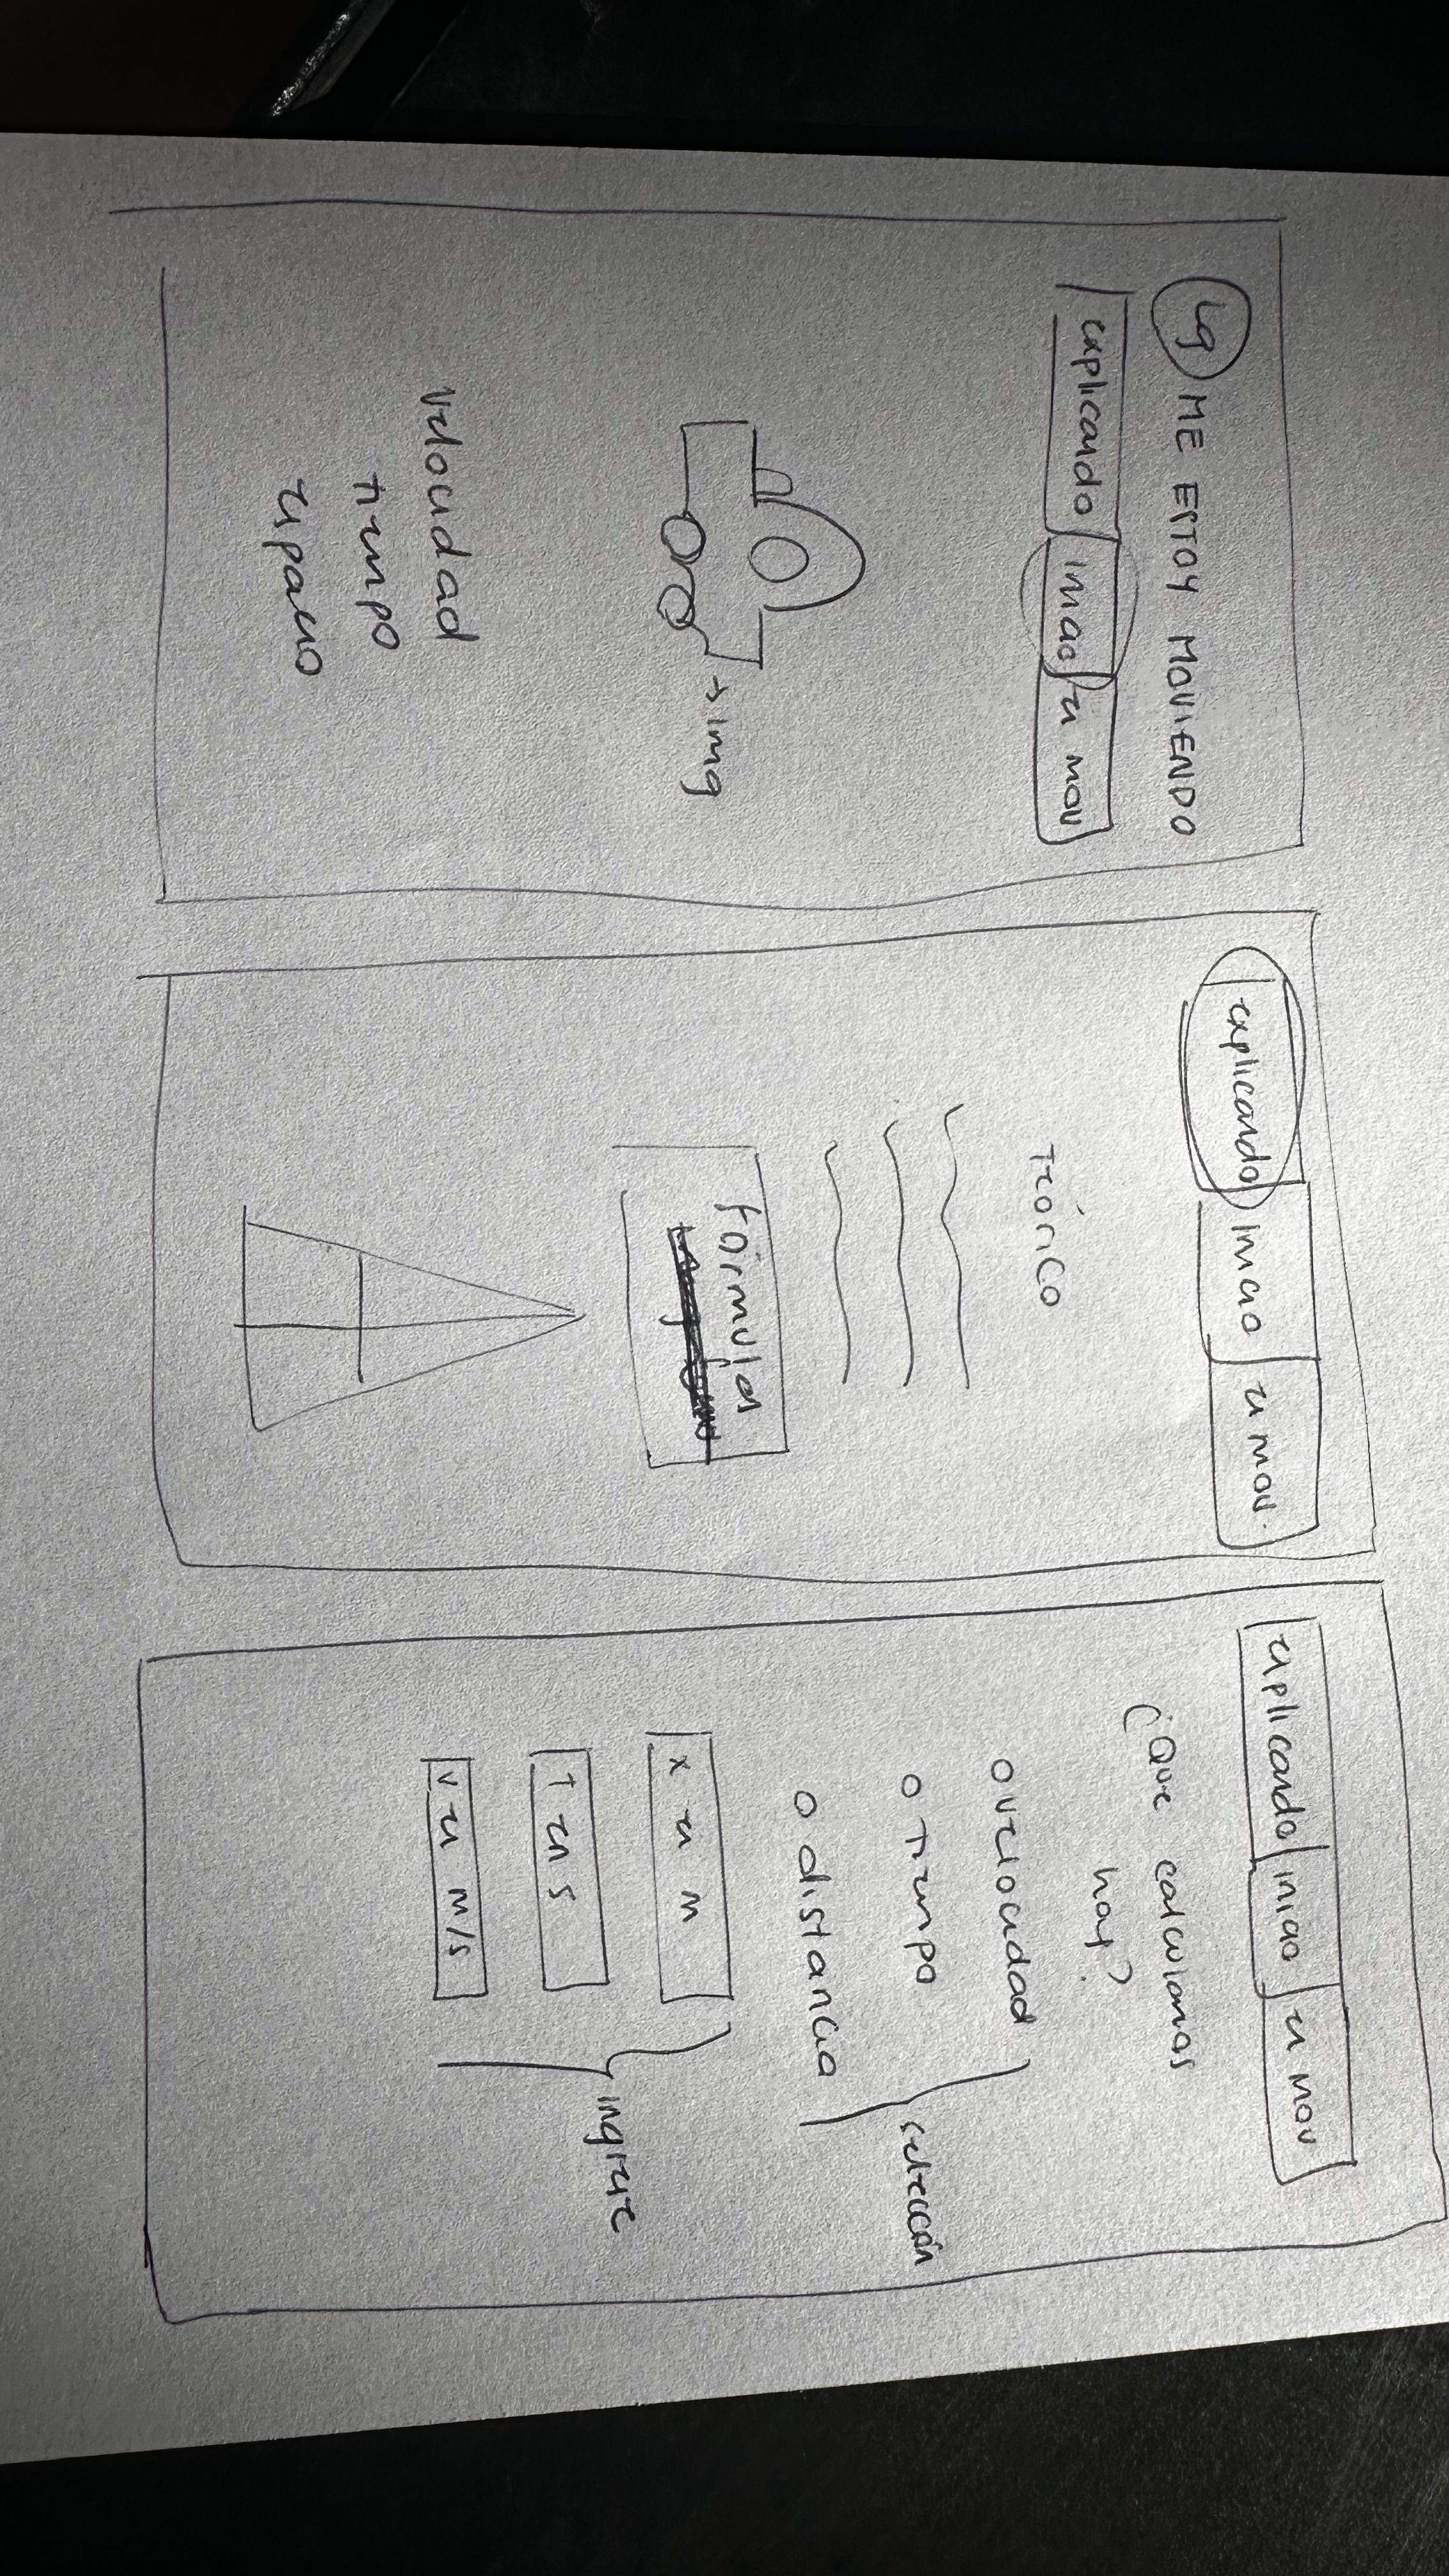 Lg ME ESTOY MOVIENDO
explicando inicio en mov
→ img
velocidad
tiempo
espacio
explicando inicio en mov.
Teórico
fórmula
explicando inicio en mov
¿Que calculamos
hoy?
o velocidad
o tiempo
o distancia
selección
x en m
T en s
v en m/s
ingrese